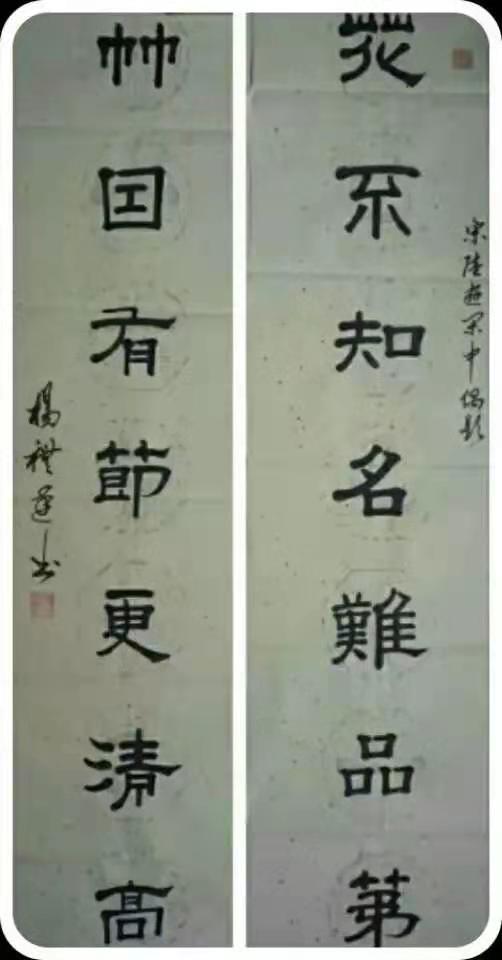 宋陸遊閑中偶題
花不知名難品第
竹因有節更清高
楊禮書